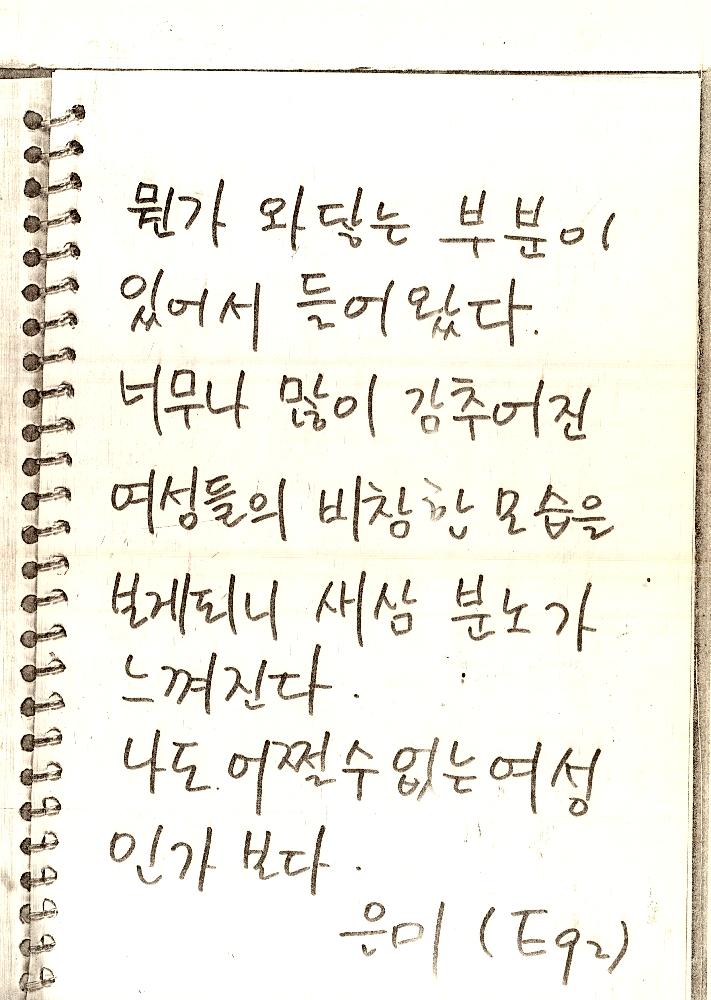 뭔가 와닿는 부분이
있어서 들어왔다.
너무나 많이 감추어진
여성들의 비참한 모습을
보게되니 새삼 분노가
느껴진다.
나도 어쩔수 없는 여성
인가 보다.
은미 (E92)